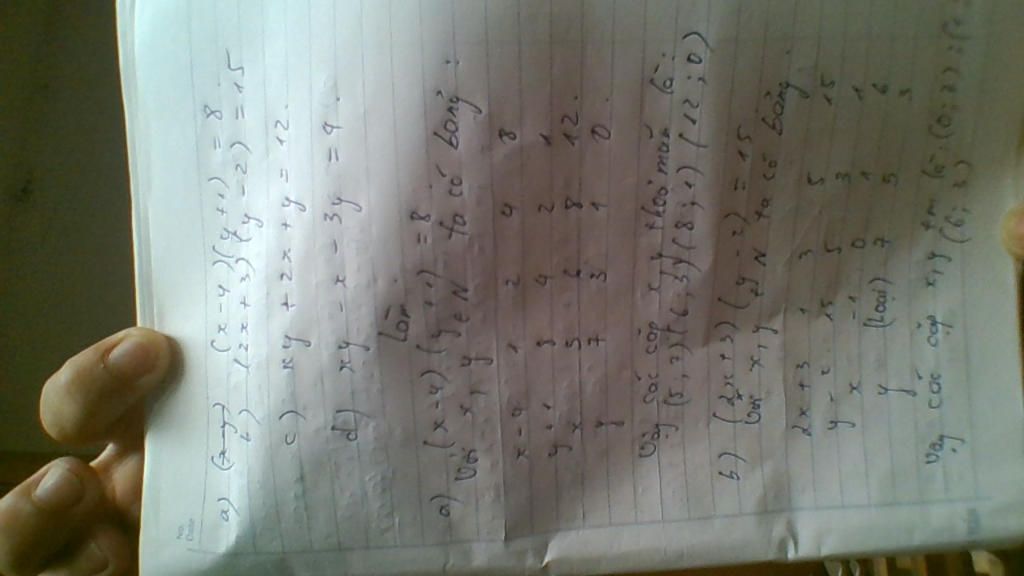 a) (x-y) (x-4)(y+1) = 8
b) (2x+3)(y-2) = 15
c) xy + 2x + y = 12.
d) xy - x - 3y = 4.
Làm
a) (x-4).(y+1) = 8
Với x, y ∈ N ta có bảng:
x-4 1 2 4 8
y+1 8 4 2 1
x 5 6 8 12
y 7 3 1 0.
Vậy các cặp x, y thỏa mãn là:
(5,7)(6,3)(8;1)(12;0)
b) (2x+3)(y-2) = 15
Với x, y ∈ N ta có bảng.
2x+3 1 3 5 15
y- 15 5 3 1
x -1 0 1 6
y (loại) 7 5 3
Vậy các cặp x, y tm là: (0;7);
(6;3)